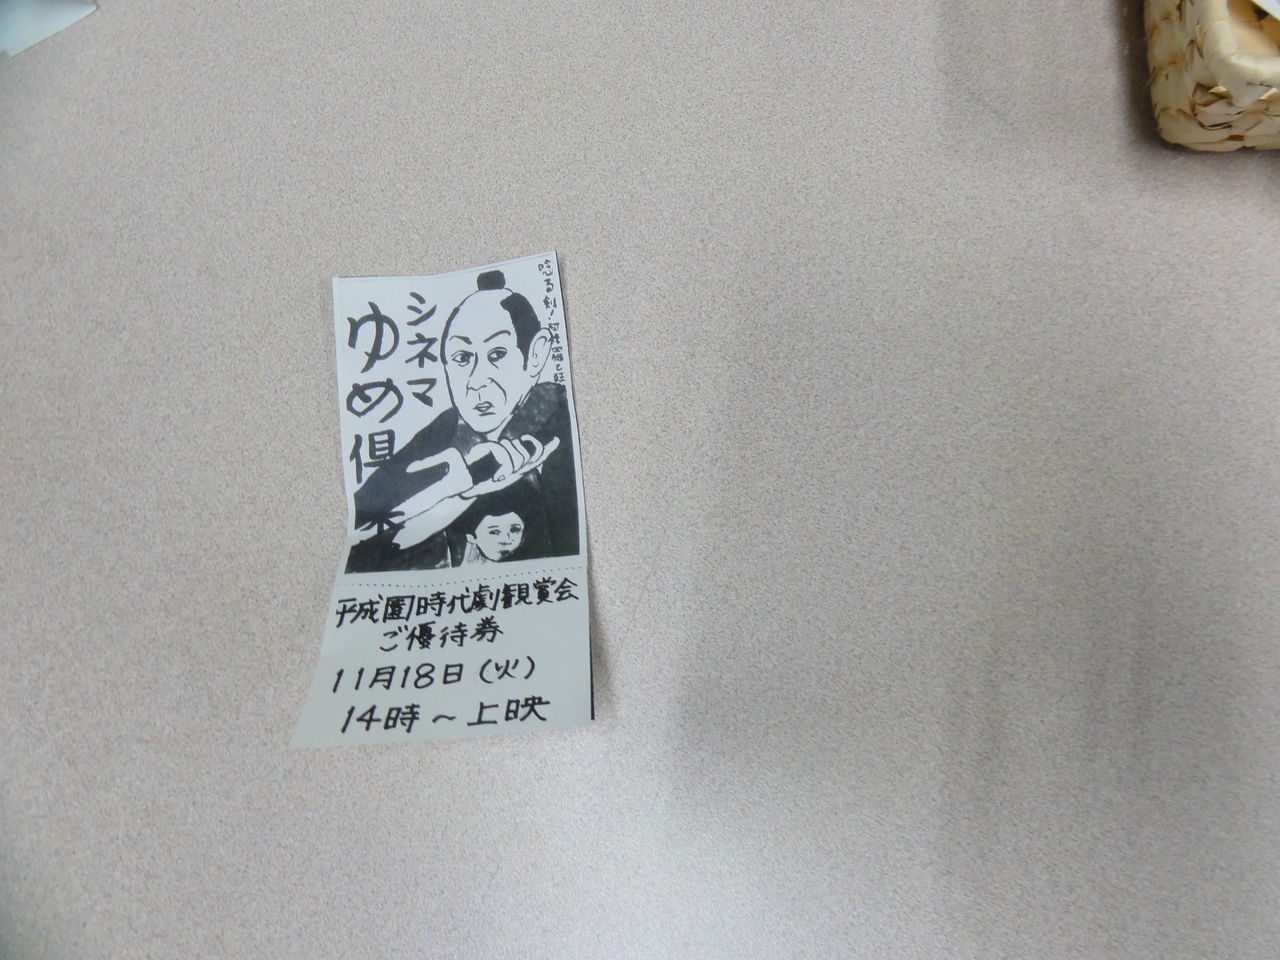 唸る剣!
シネマ
ゆめ倶
平成園時代劇観賞会
ご優待券
11月18日(火)
14時～上映